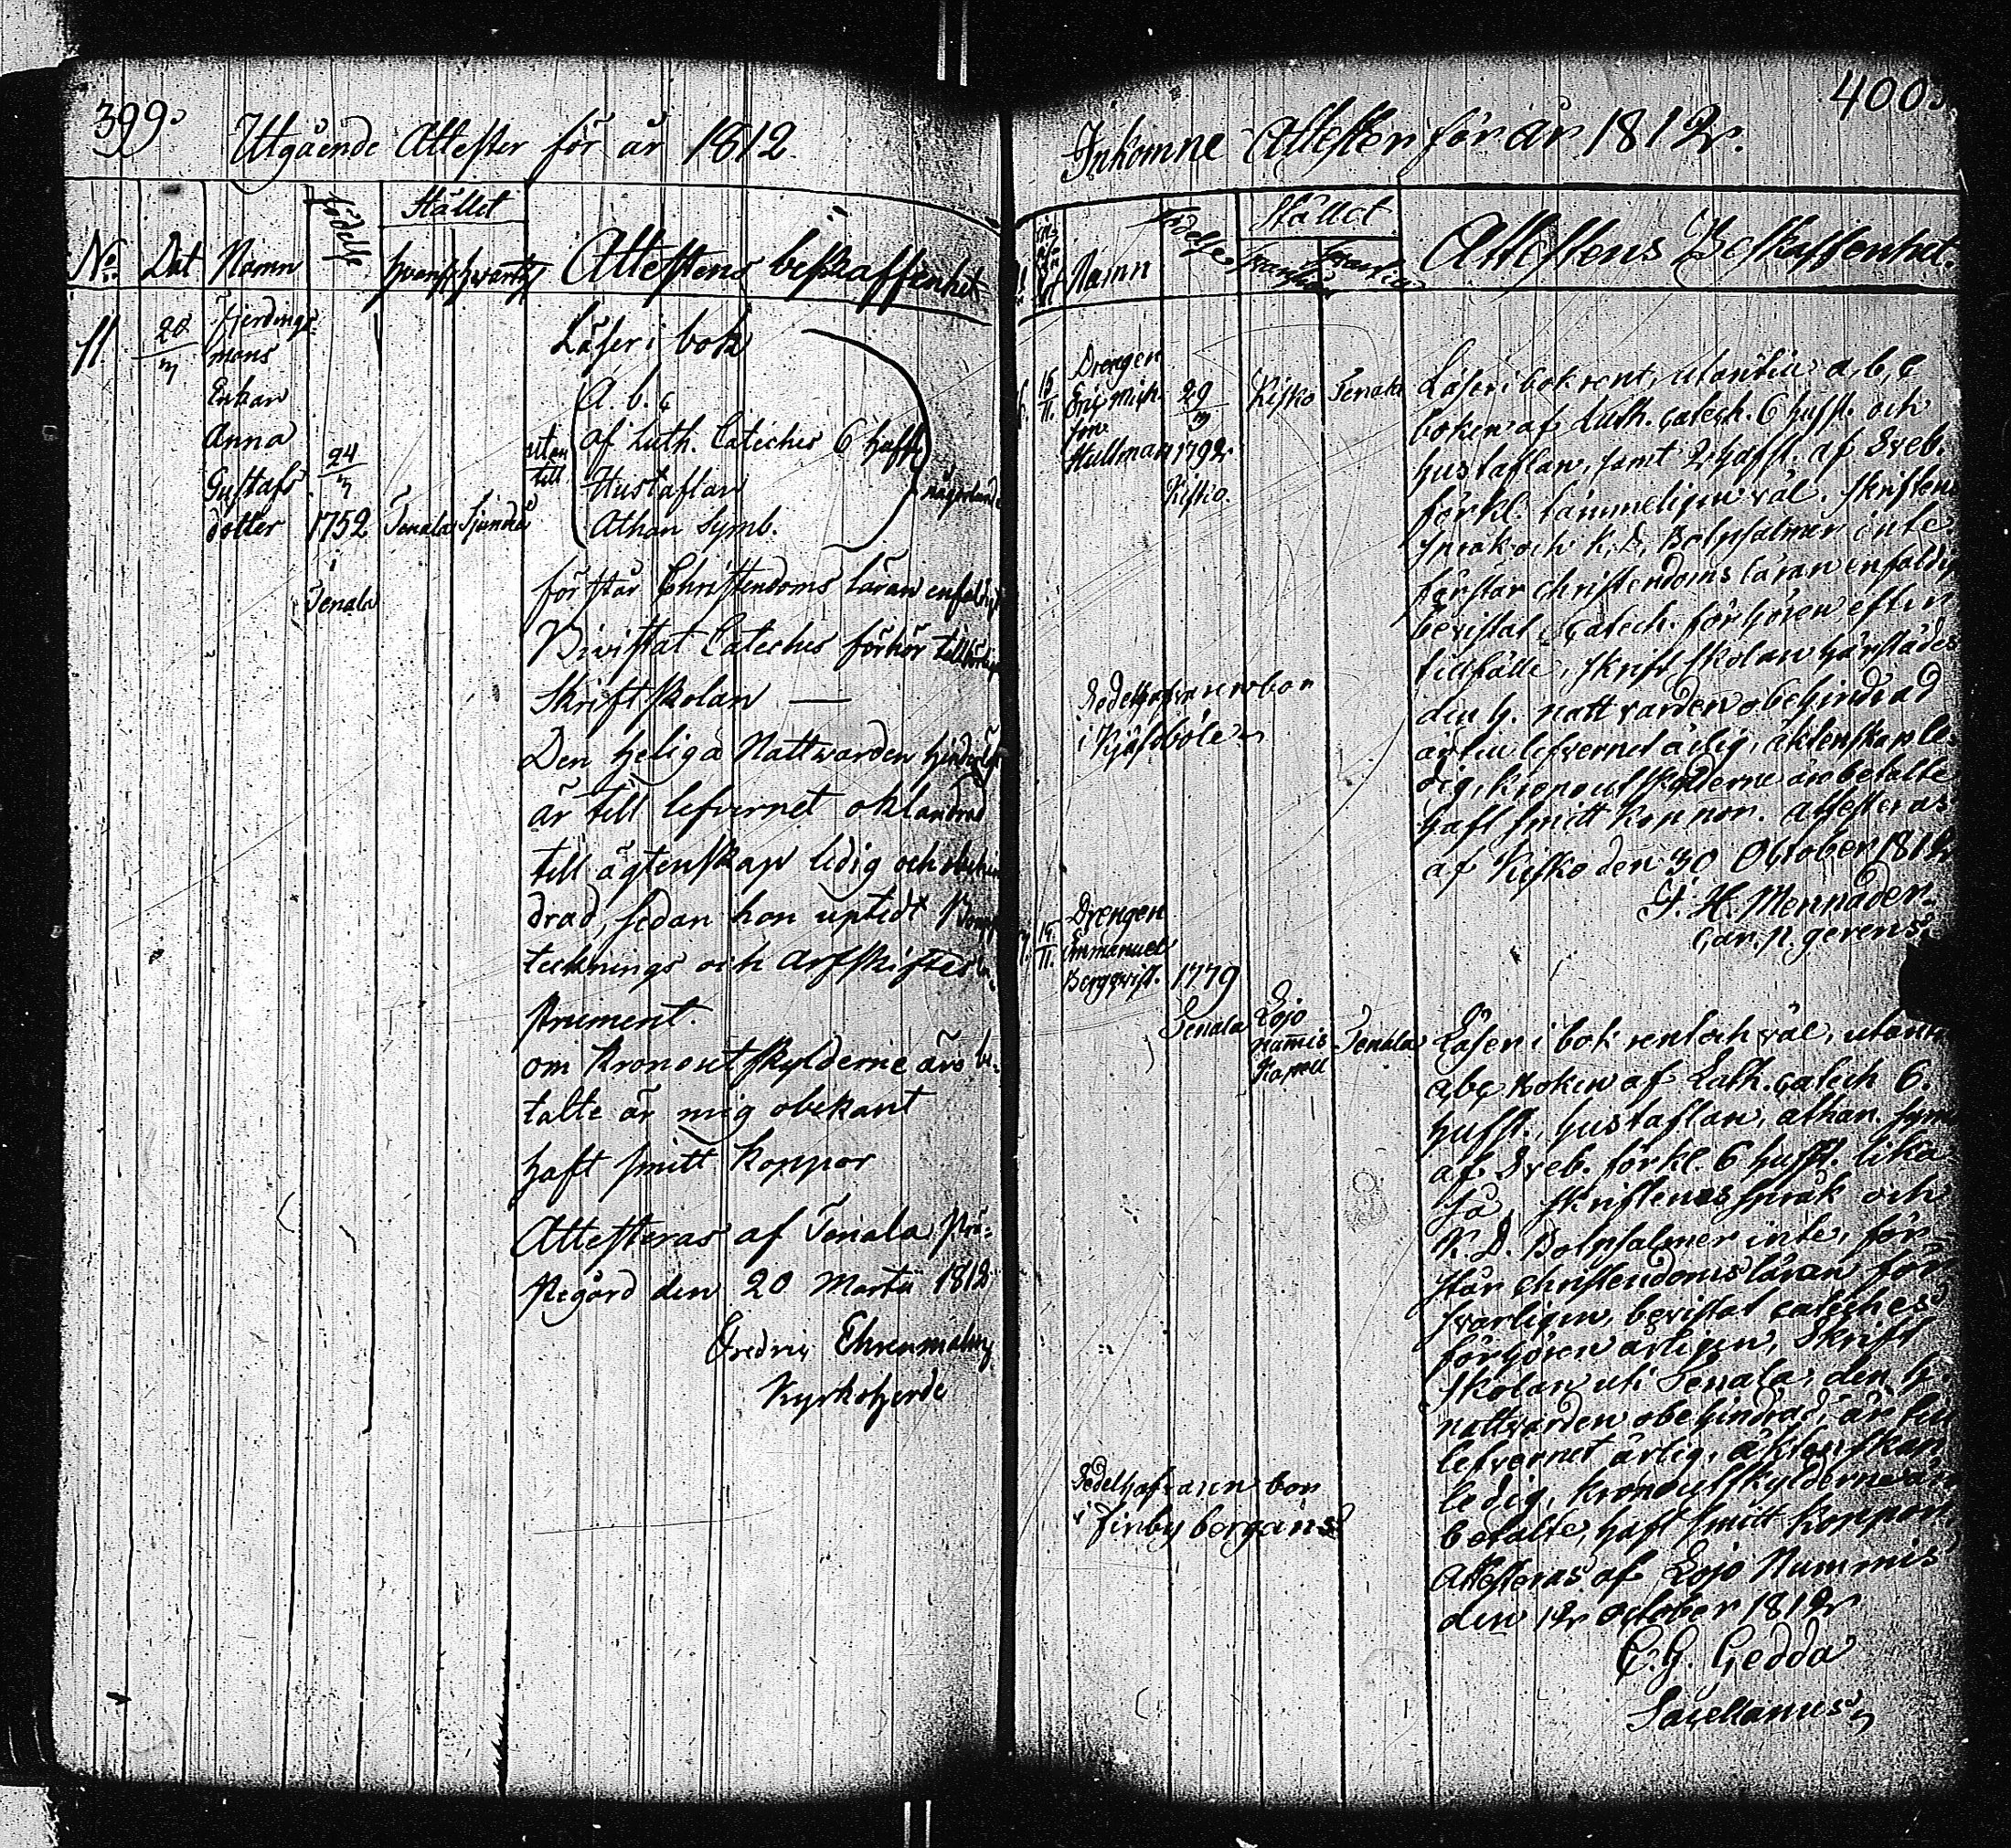 399.
Utgående Attester för år 1812
Stället
födelse
No. Dat Namn hvarifr hwartil Attestens beskaffenhet
11. 20/3 Fjerdings
mans
Enkan
Anna
Gustafs
dotter
24/3
1752
i
Tenala
Tenala Sjundeå
Läser i bok
utan till
A. b. c
af Luth. Cateches 6 hufst
Hustaflan
Athan Symb.
någorlunda
förstår Christendoms läran enfaldigt
Bivistat Cateches förhör
Skriftskolan —
Den heliga Nattwarden
är till lefvernet oklandrad
till ägtenskap ledig och obehin
drad, sedan hon uptedt
tecknings och Arfskiftes in-
strument.
om Kronoutskylderne äro be-
talte är mig obekant
haft smitt koppor
Attesteras af Tenala Prä-
stegård den 20 Martii 1812
Fredric Ehrenmalm
Kyrkoherde
400.
Inkomne Attester för år 1812.
Stället
Namn födelse hvarifrån hvartil Attestens Beskaffenhet.
15/11. Drengen
Eric Mich.
son
Hultman
29/3
1792
Kisko.
Kisko Tenala
Läser i bok rent, utantill a, b, c
boken af Luth. catech. 6 hufst. och
hustaflan, samt 2 hufst. af Sveb.
förkl. tämmeligen väl. skriftens
språk och K. D. Botpsalmer inte
förstår christendoms läran enfaldigt
bevistat catech. förhören efter
tillfälle, skrift skolan härstädes
den h. nattvarden obehindrad
är till lefvernet ärlig, äktenskap le
dig, kronoutskylderne äro betalte
haft smitt koppor. Attesteras
af Kisko den 30 October 1812
F. H. Mennader
Car. p. gerens.
Sedelhafvaren bor
i Kjälsböle
15/11. Drengen
Emmanuel
Bergqvist.
1779
Tenala
Lojo
Nummis
Kapell
Tenala
Läser i bok rent och väl, utantill
abc boken af Luth. catech 6.
hufst., hustaflan, athan. sym
af Sveb. förkl. 6 hufst. lika
så skriftenes språk och
K. D. Botpsalmer inte, för
står christendoms läran för
svarligen, bevistat cateches
förhören årligen, skrift
skolan uti Tenala, den h.
nattvarden obehindrad, är till
lefvernet ärlig, äktenskap
ledig, kronoutskylderne äro
betalte, haft smitt koppor.
Attesteras af Lojo Nummis
den 12 october 1812
C. G. Gedda
Sacellanus
Sedelhafvaren bor
i Finby bergans